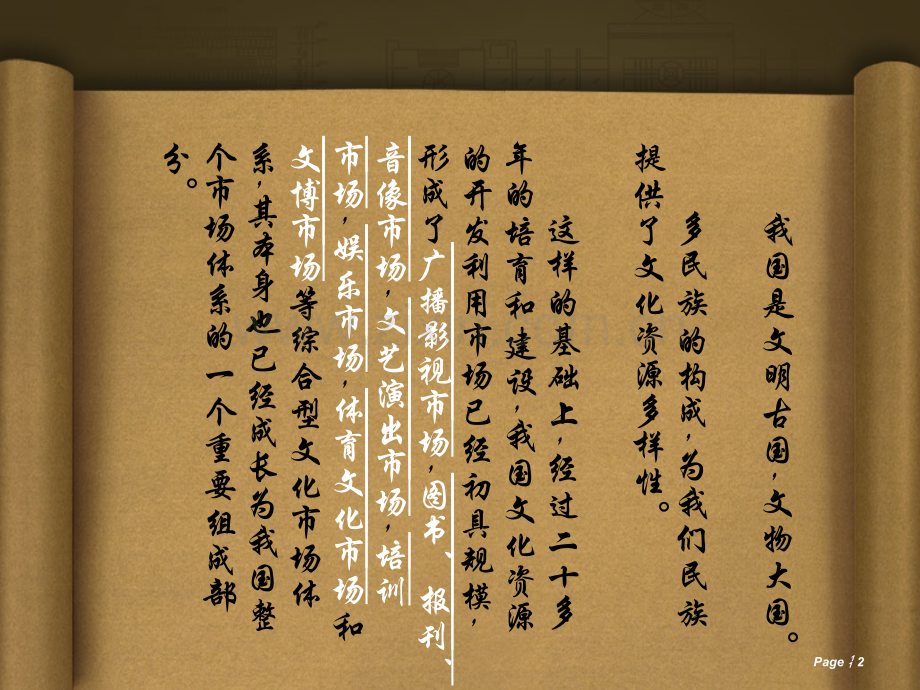 我国是文明古国,文物大国。
多民族的构成,为我们民族
提供了文化资源多样性。
这样的基础上,经过二十多
年的培育和建设,我国文化资源
的开发利用市场已经初具规模,
形成了广播影视市场,图书、报刊、
音像市场,文艺演出市场,培训
市场,娱乐市场,体育文化市场和
文博市场等综合型文化市场体
系,其本身也已经成长为我国整
个市场体系的一个重要组成部
分。
Page 2